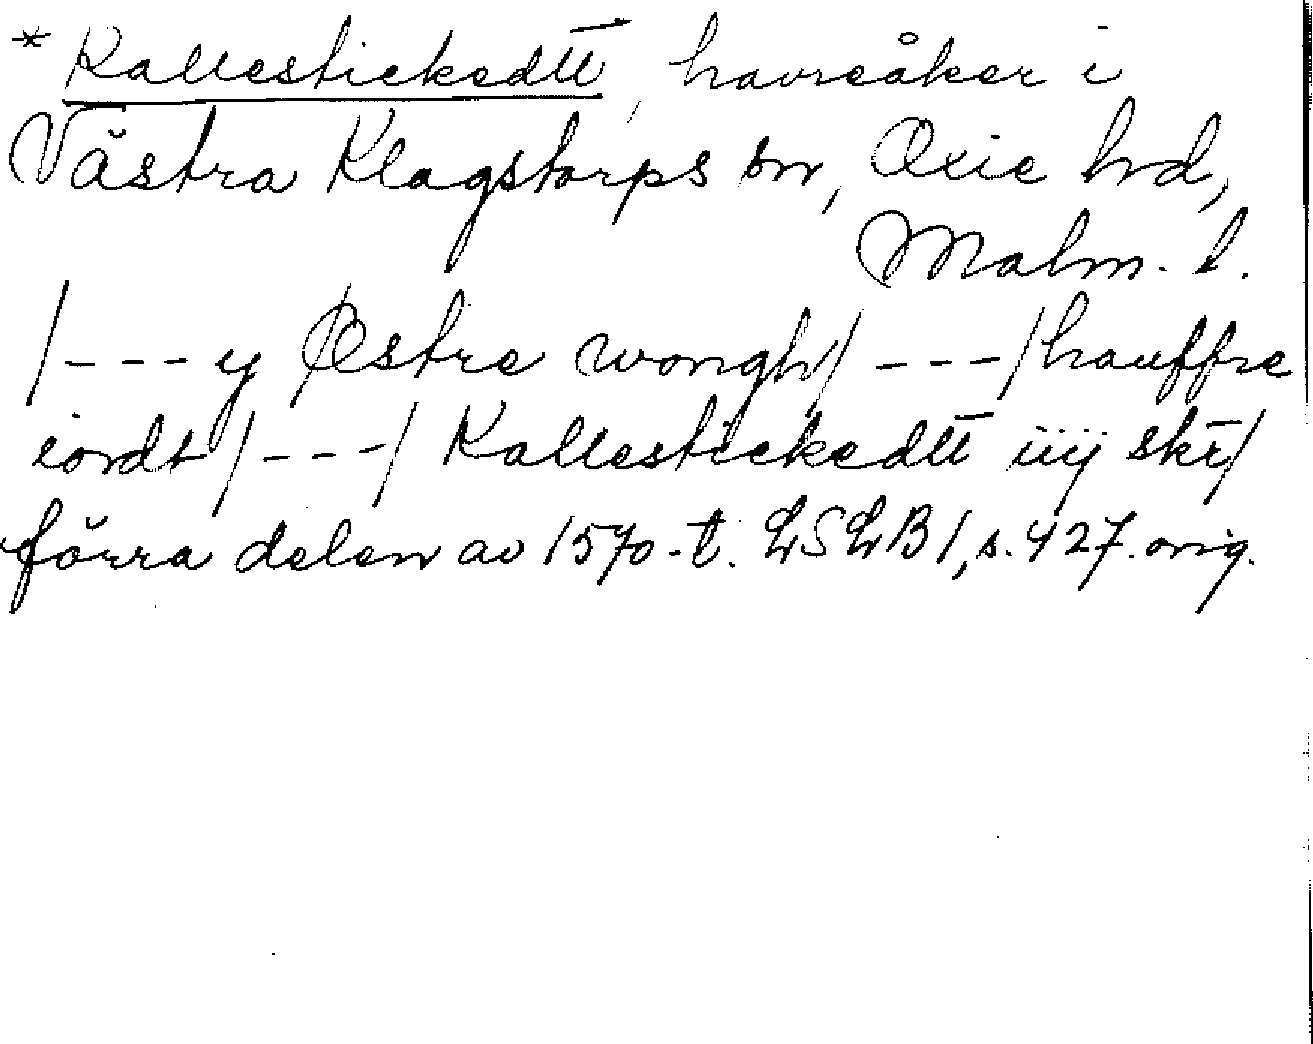 * Kallestickedtt, havreåker i
Västra Klagstorps sn, Oxie hd,
Malm. l.
/---y Østre wongh/ ---/hauffre
iordt/---/ Kallestickedtt iiij skr̄/
förra delen av 1570-t. LSLB1, s. 427. orig.